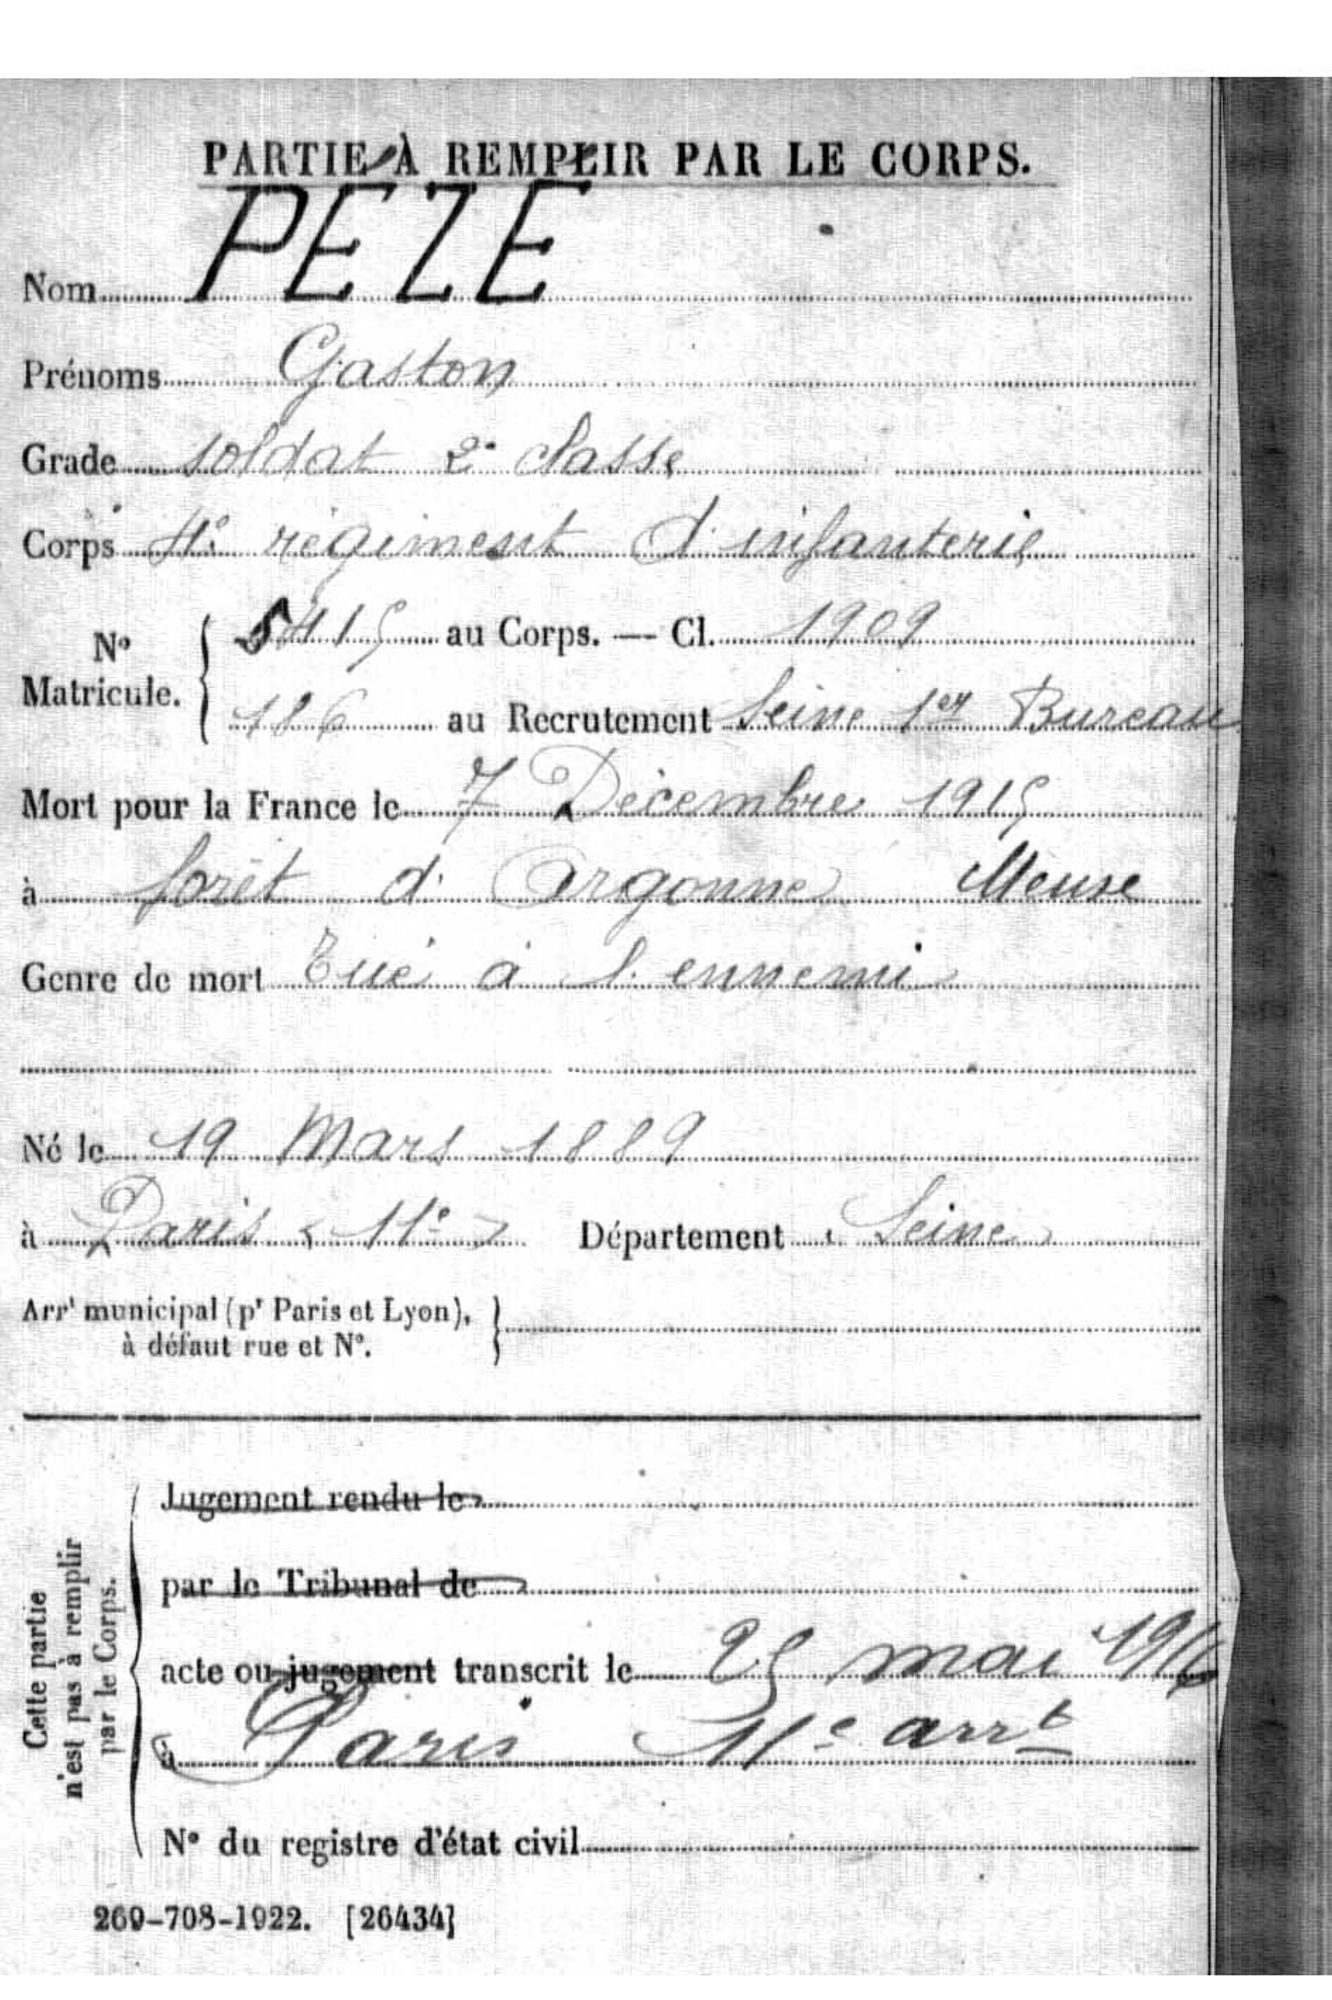 PARTIE À REMPLIR PAR LE CORPS.
Nom PÉZÉ
Prénoms Gaston
Grade soldat 2e classe
Corps 4e régiment d'infanterie
No Matricule. 5415 au Corps. — Cl. 1909
186 au Recrutement Seine 1er Bureau
Mort pour la France le 7 Décembre 1915
à forêt d'Argonne Meuse
Genre de mort Tué à l'ennemi
Né le 19 Mars 1889
à Paris (11e) Département (Seine)
Arrt municipal (pr Paris et Lyon),
à défaut rue et No.
Cette partie
n'est pas à remplir
par le Corps.
Jugement rendu le
par le Tribunal de
acte ou jugement transcrit le 25 mai 1916
à Paris 11e arrt
No du registre d'état civil
269-708-1922. [26434]